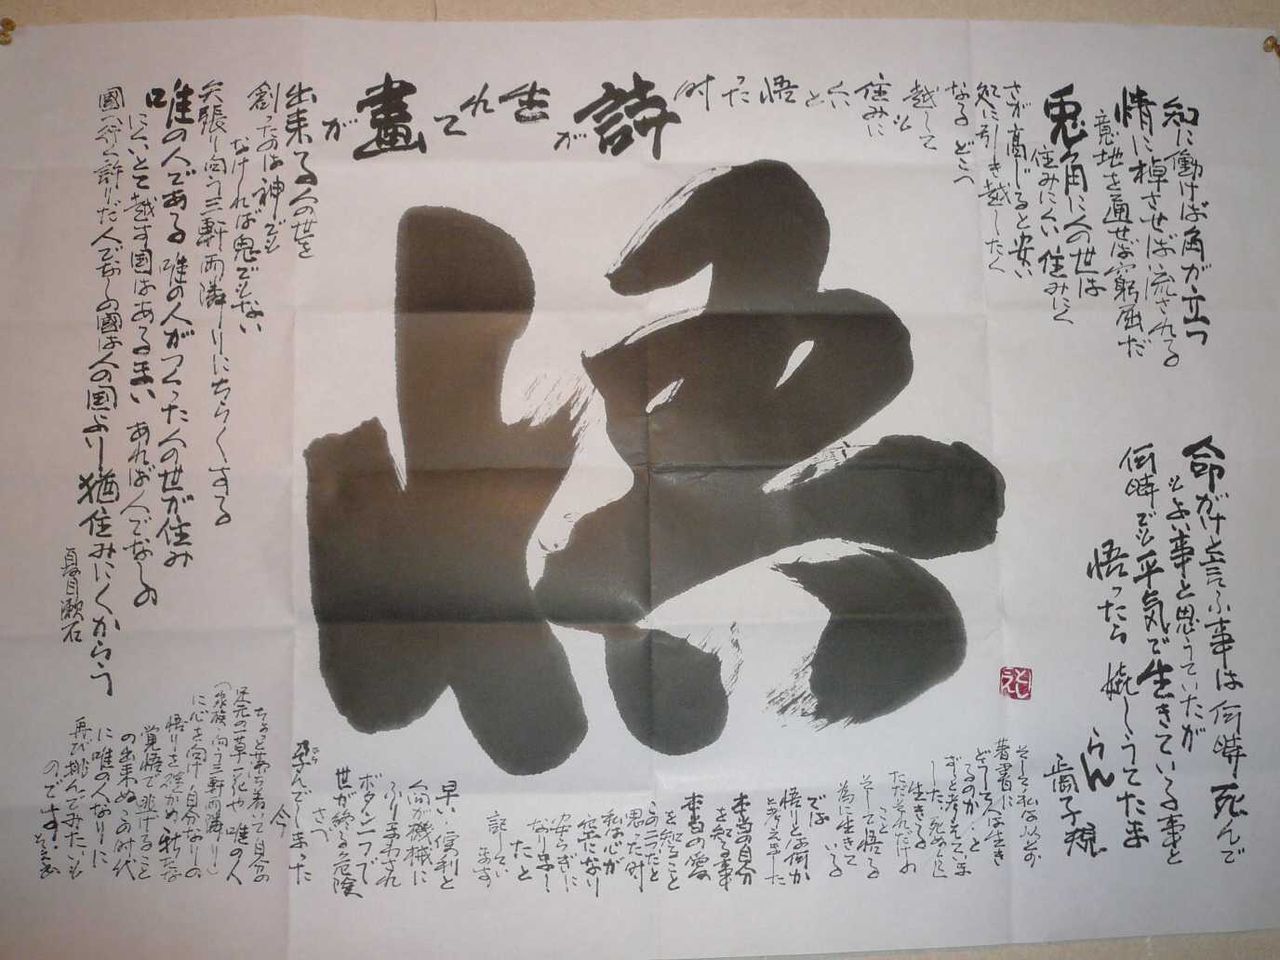 知に働けば角が立つ
情に棹させば流される
意地を通せば窮屈だ
兎角に人の世は
住みにくい 住みにく
さが高じると安い
処に引き越したく
なる どこへ
越しても
住みに
くいと
悟った時
詩が
生れて
畫が
出来る 人の世を
創ったのは神でも
なければ鬼でもない
矢張り向う三軒両隣りにちらくする
唯の人である 唯の人がつくった人の世が住み
にくいとて越す国はあるまい あれば人でなしの
國へ行く許りだ 人でなしの國は人の国より猶住みにくからう
夏目漱石
命がけと言ふ事は何時死んで
もよい事と思っていたが
何時でも平気で生きている事と
悟ったら 嬉しうてたま
らん
正岡子規
悟
そして
生き
ただそれだけの
こと
そして悟る
為に生きて
いる
では
悟りとは何か
と考えました
本当の自分
を知る事
本当の愛
を知ること
思った時
私は心が
安らぎに
なりまし
たと
記して
います
早い 便利と
人間が機械に
ふりまわされ
ボタン一つで
世が終る危険
さへ
孕んでしまった
今
ちょっと落ち着いて自分の
足元の一草一花や 唯の人
(家族・向う三軒両隣り)
に心を向け 自分なりの
悟りを 新たな
覚悟で 逃げること
の出来ぬ この時代
に唯の人なりに
再び挑んでみたいも
のです!